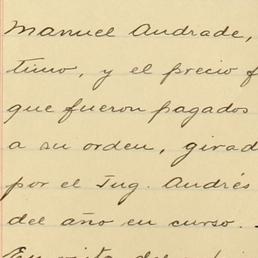 Manuel Andrade,
timo, y el precio f
que fueron pagados
a su orden, girad
por el Ing. Andrés
del año en curso. -
En vista del